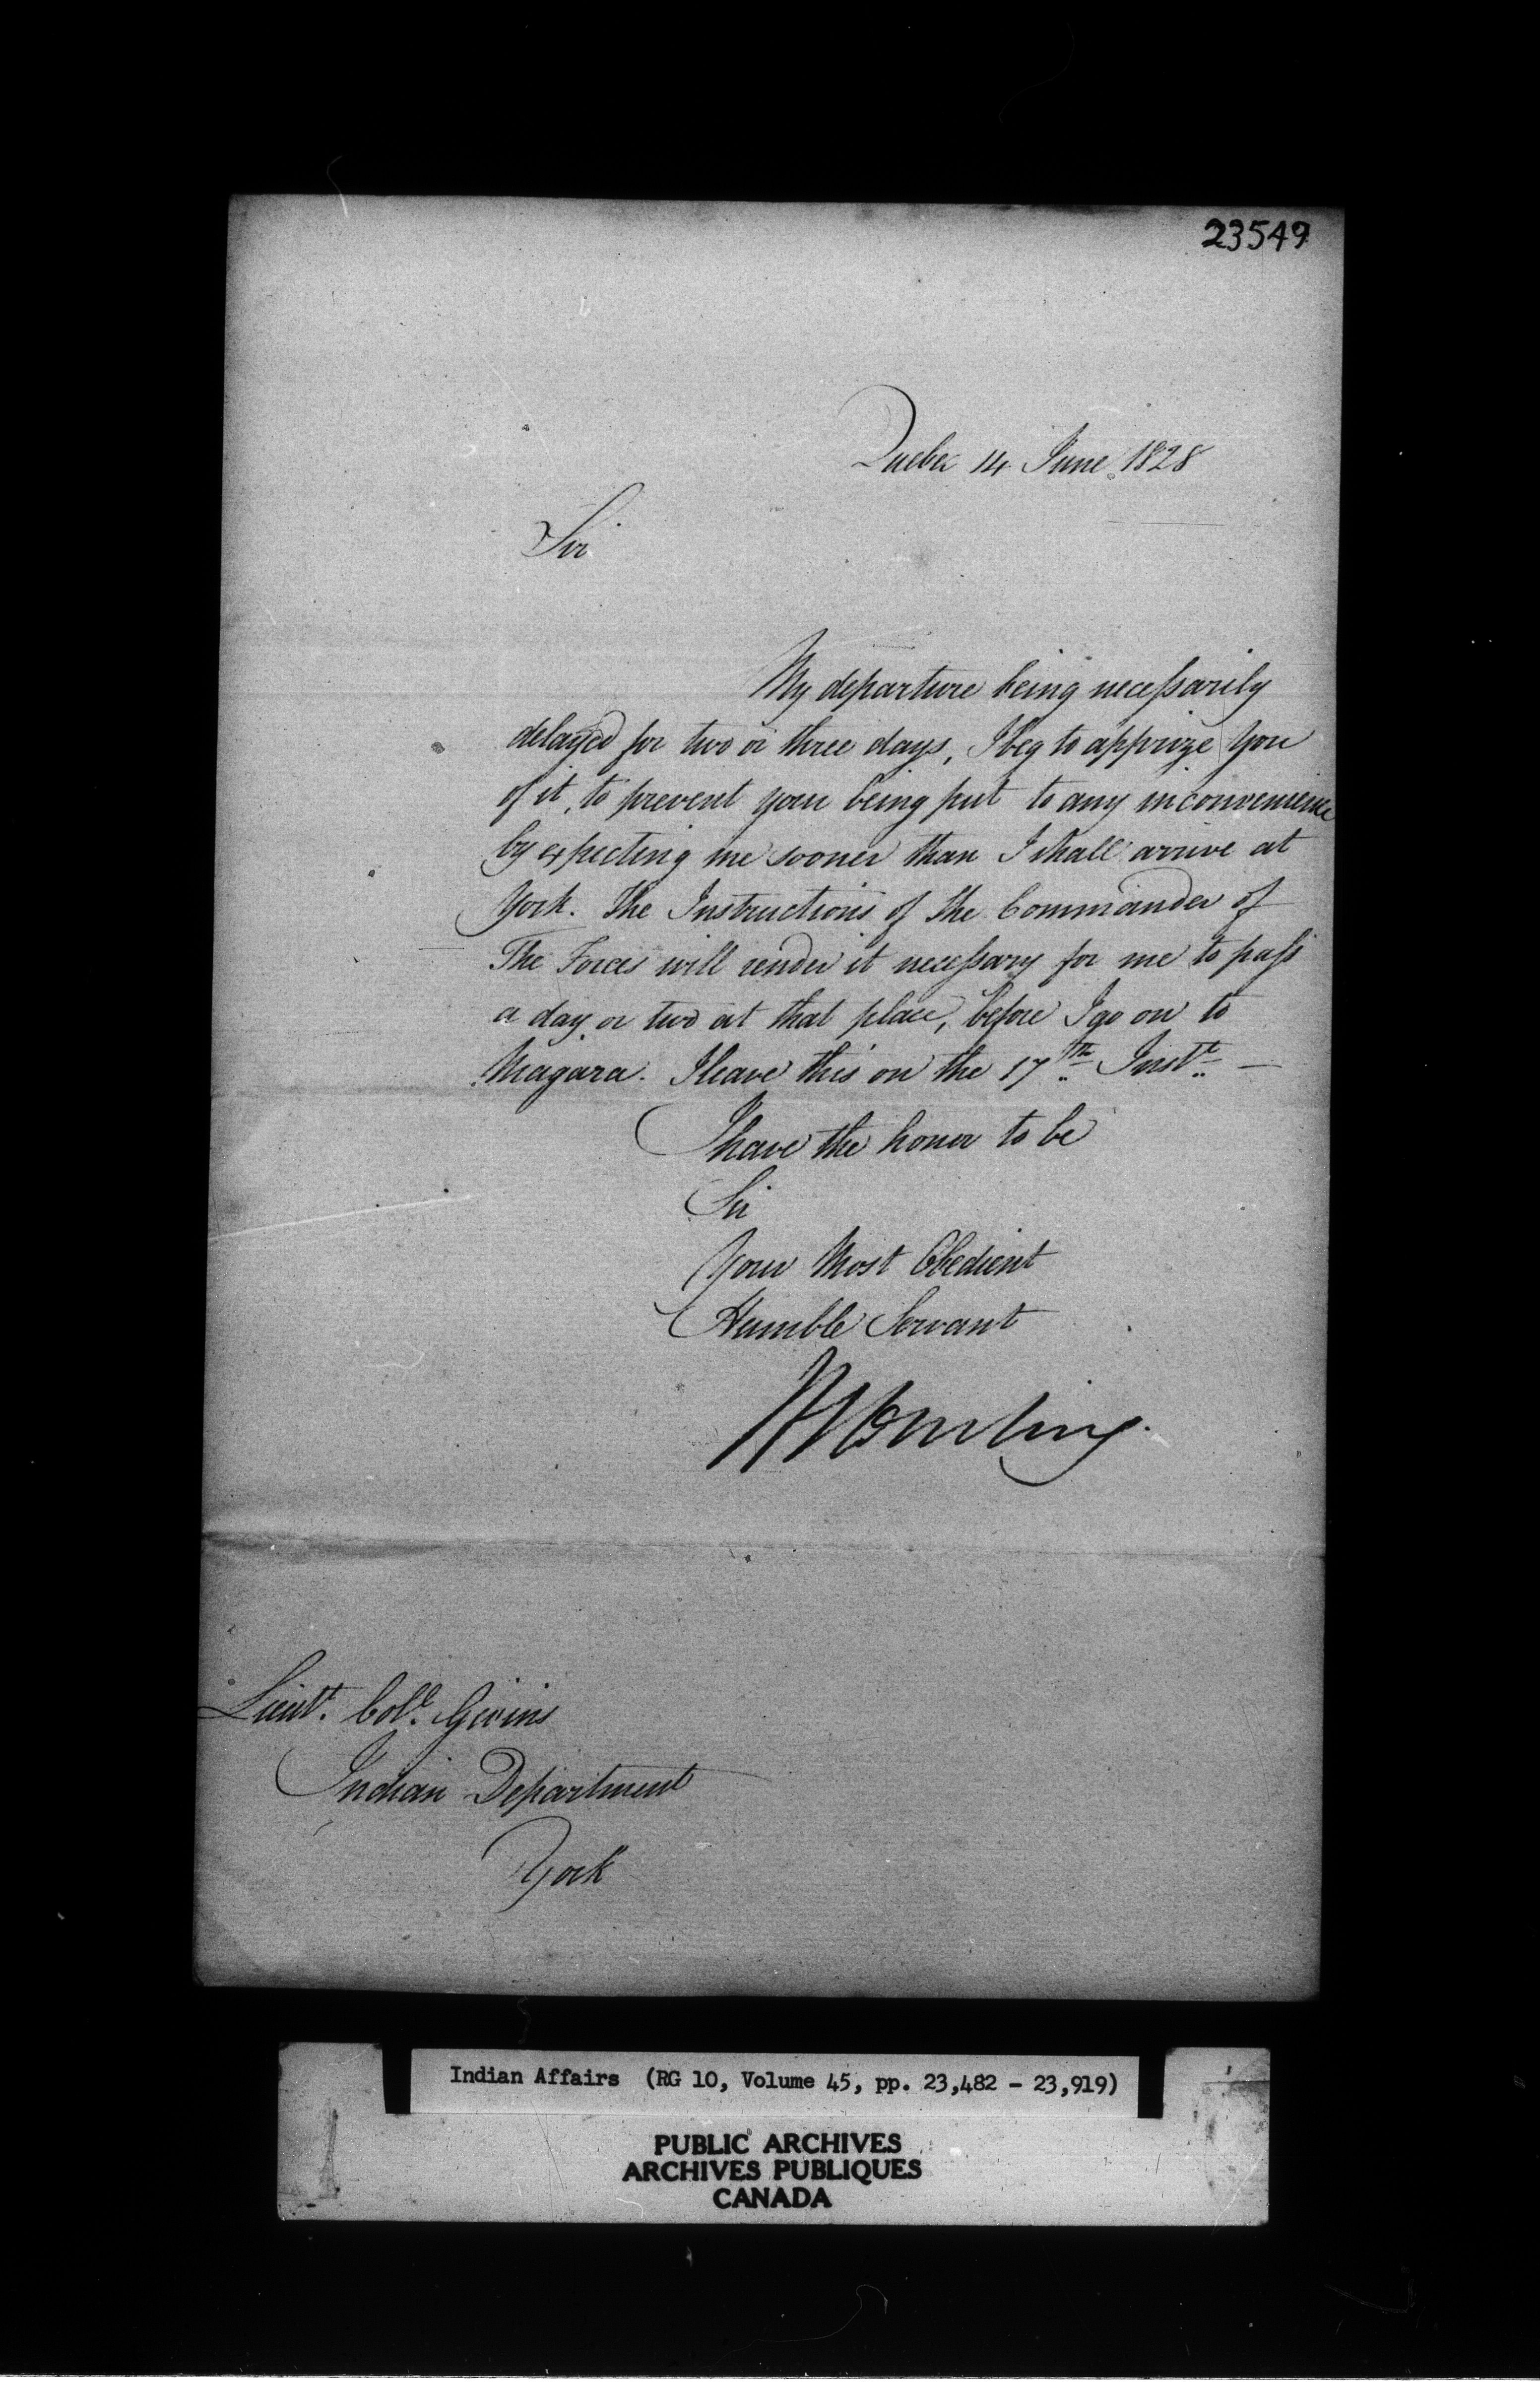 23549
Quebec 14 June 1828
Sir
My departure being necessarily
delayed for two or three days, I beg to apprize you
of it, to prevent your being put to any inconvenience
by expecting me sooner than I shall arrive at
York. The Instructions of the Commander of
The Forces will render it necessary for me to pass
a day or two at that place, before I go on to
Niagara. I leave this on the 17th Instt. —
I have the honor to be
Sir
Your Most Obedient
Humble Servant
Lieutt. Coll. Givins
Indian Department
York
Indian Affairs (RG 10, Volume 45, pp. 23,482 - 23,919)
PUBLIC ARCHIVES
ARCHIVES PUBLIQUES
CANADA